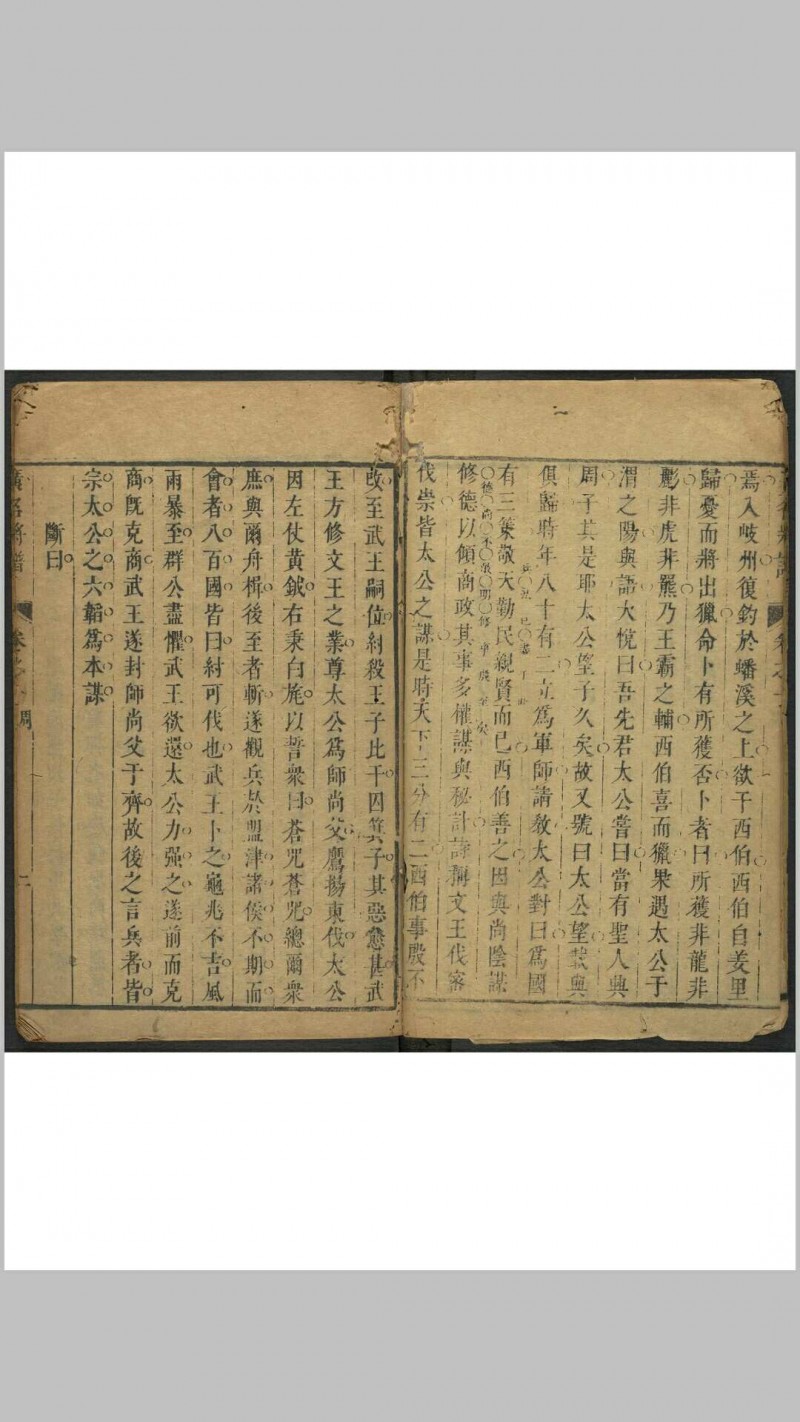 焉入岐州復釣於蟠溪之上欲干西伯西伯自羑里
歸憂而將出獵命卜有所獲否卜者曰所獲非龍非
彲非虎非羆乃王霸之輔西伯喜而獵果遇太公于
渭之陽與語大悅曰吾先君太公嘗曰當有聖人興
周子其是耶太公望子久矣故又號曰太公望載與
俱歸時年八十有二立為軍師請教太公對曰為國
有三策敬天勤民親賢而已西伯善之因與尚陰謀
修德以傾商政其事多權謀與秘計詩稱文王伐密
伐崇皆太公之謀是時天下三分有二西伯事殷不
改至武王嗣位紂殺王子比干因箕子其惡愈甚武
王方修文王之業尊太公為師尚父鷹揚東伐太公
因左仗黃鉞右秉白旄以誓衆曰蒼兕蒼兕總爾衆
庶與爾舟楫後至者斬遂觀兵於盟津諸侯不期而
會者八百國皆曰紂可伐也武王卜之龜兆不吉風
雨暴至群公盡懼武王欲還太公力强之遂前而克
商既克商武王遂封師尚父于齊故後之言兵者皆
宗太公之六韜為本謀
斷曰
廣名將譜 卷之一 周 二